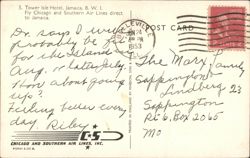 S. Tower Isle Hotel, Jamaica, B. W. I.
Fly Chicago and Southern Air Lines direct
to Jamaica.
POST CARD
1953
Dr. says I will
probably be
for the Island
Aug. or later
How about going
up?
Feeling better every
day
Riley
The Marx Family
Sappington
Lindberg 23
Sappington
R 6, Box 2065
Mo
C&S
CHICAGO AND SOUTHERN AIR LINES, INC.